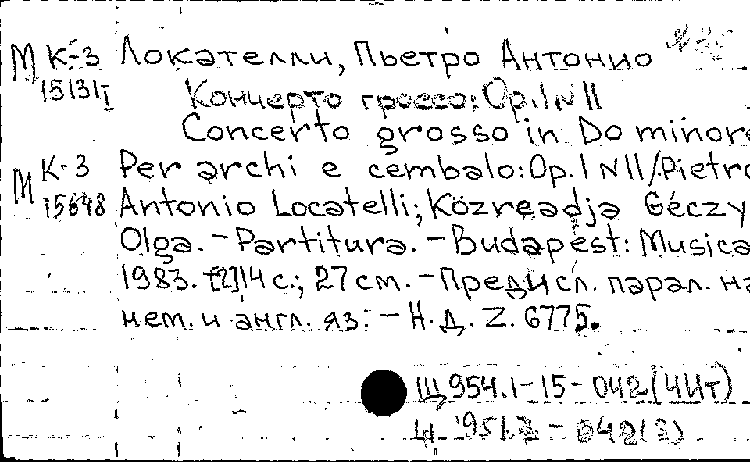 М К-3 Локателли, Пьетро Антонио
15131I Концерто гроссо: Op.1 N11
Concerto grosso in Do minore
М К-3 Per archi e cembalo: Op.1 N11/Pietro
15648 Antonio Locatelli; Közreadja Géczy
Olga. – Partitura. – Budapest: Musica
1983. – [2]14 с.; 27 см. – Предисл. парал. на
нем. и англ. яз. – Н.д. Z. 6775.
Щ954.1-15-042(4Ит)